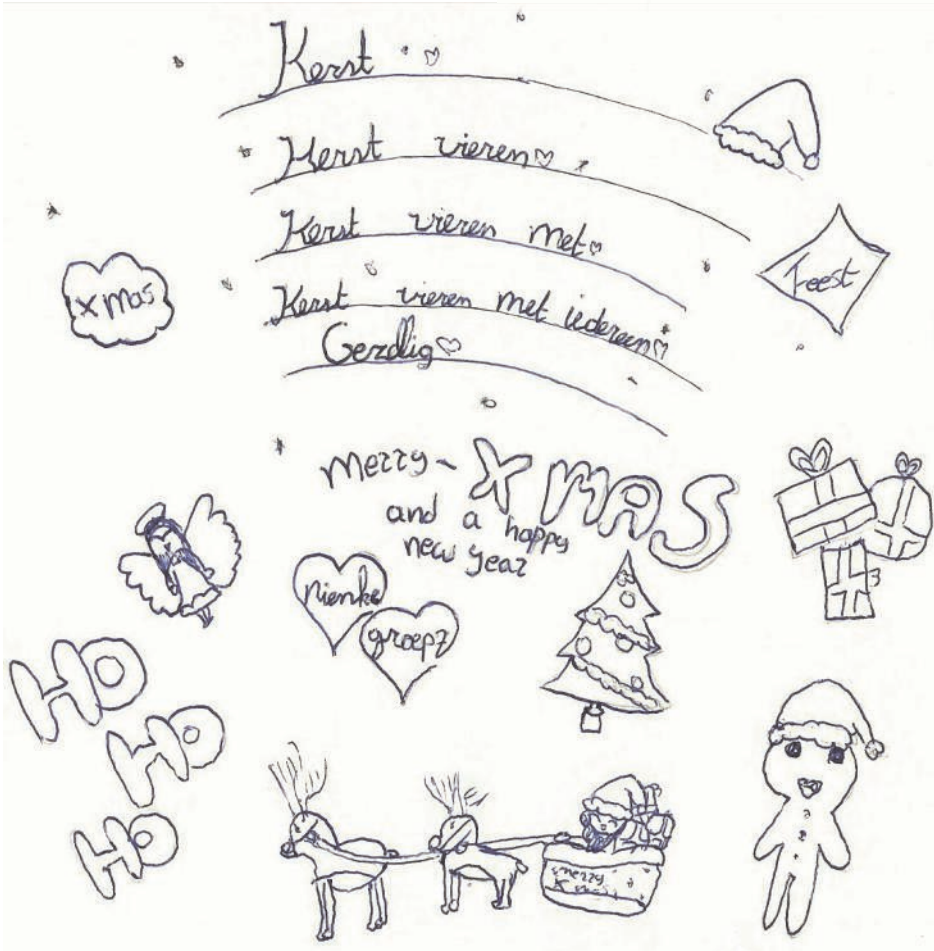 Kerst
Kerst vieren
Kerst vieren met
Kerst vieren met iedereen
Gezellig
xmas
Feest
Merry - XMAS
and a happy
new year
nienke
groep7
HO
HO
HO
merry
X mas